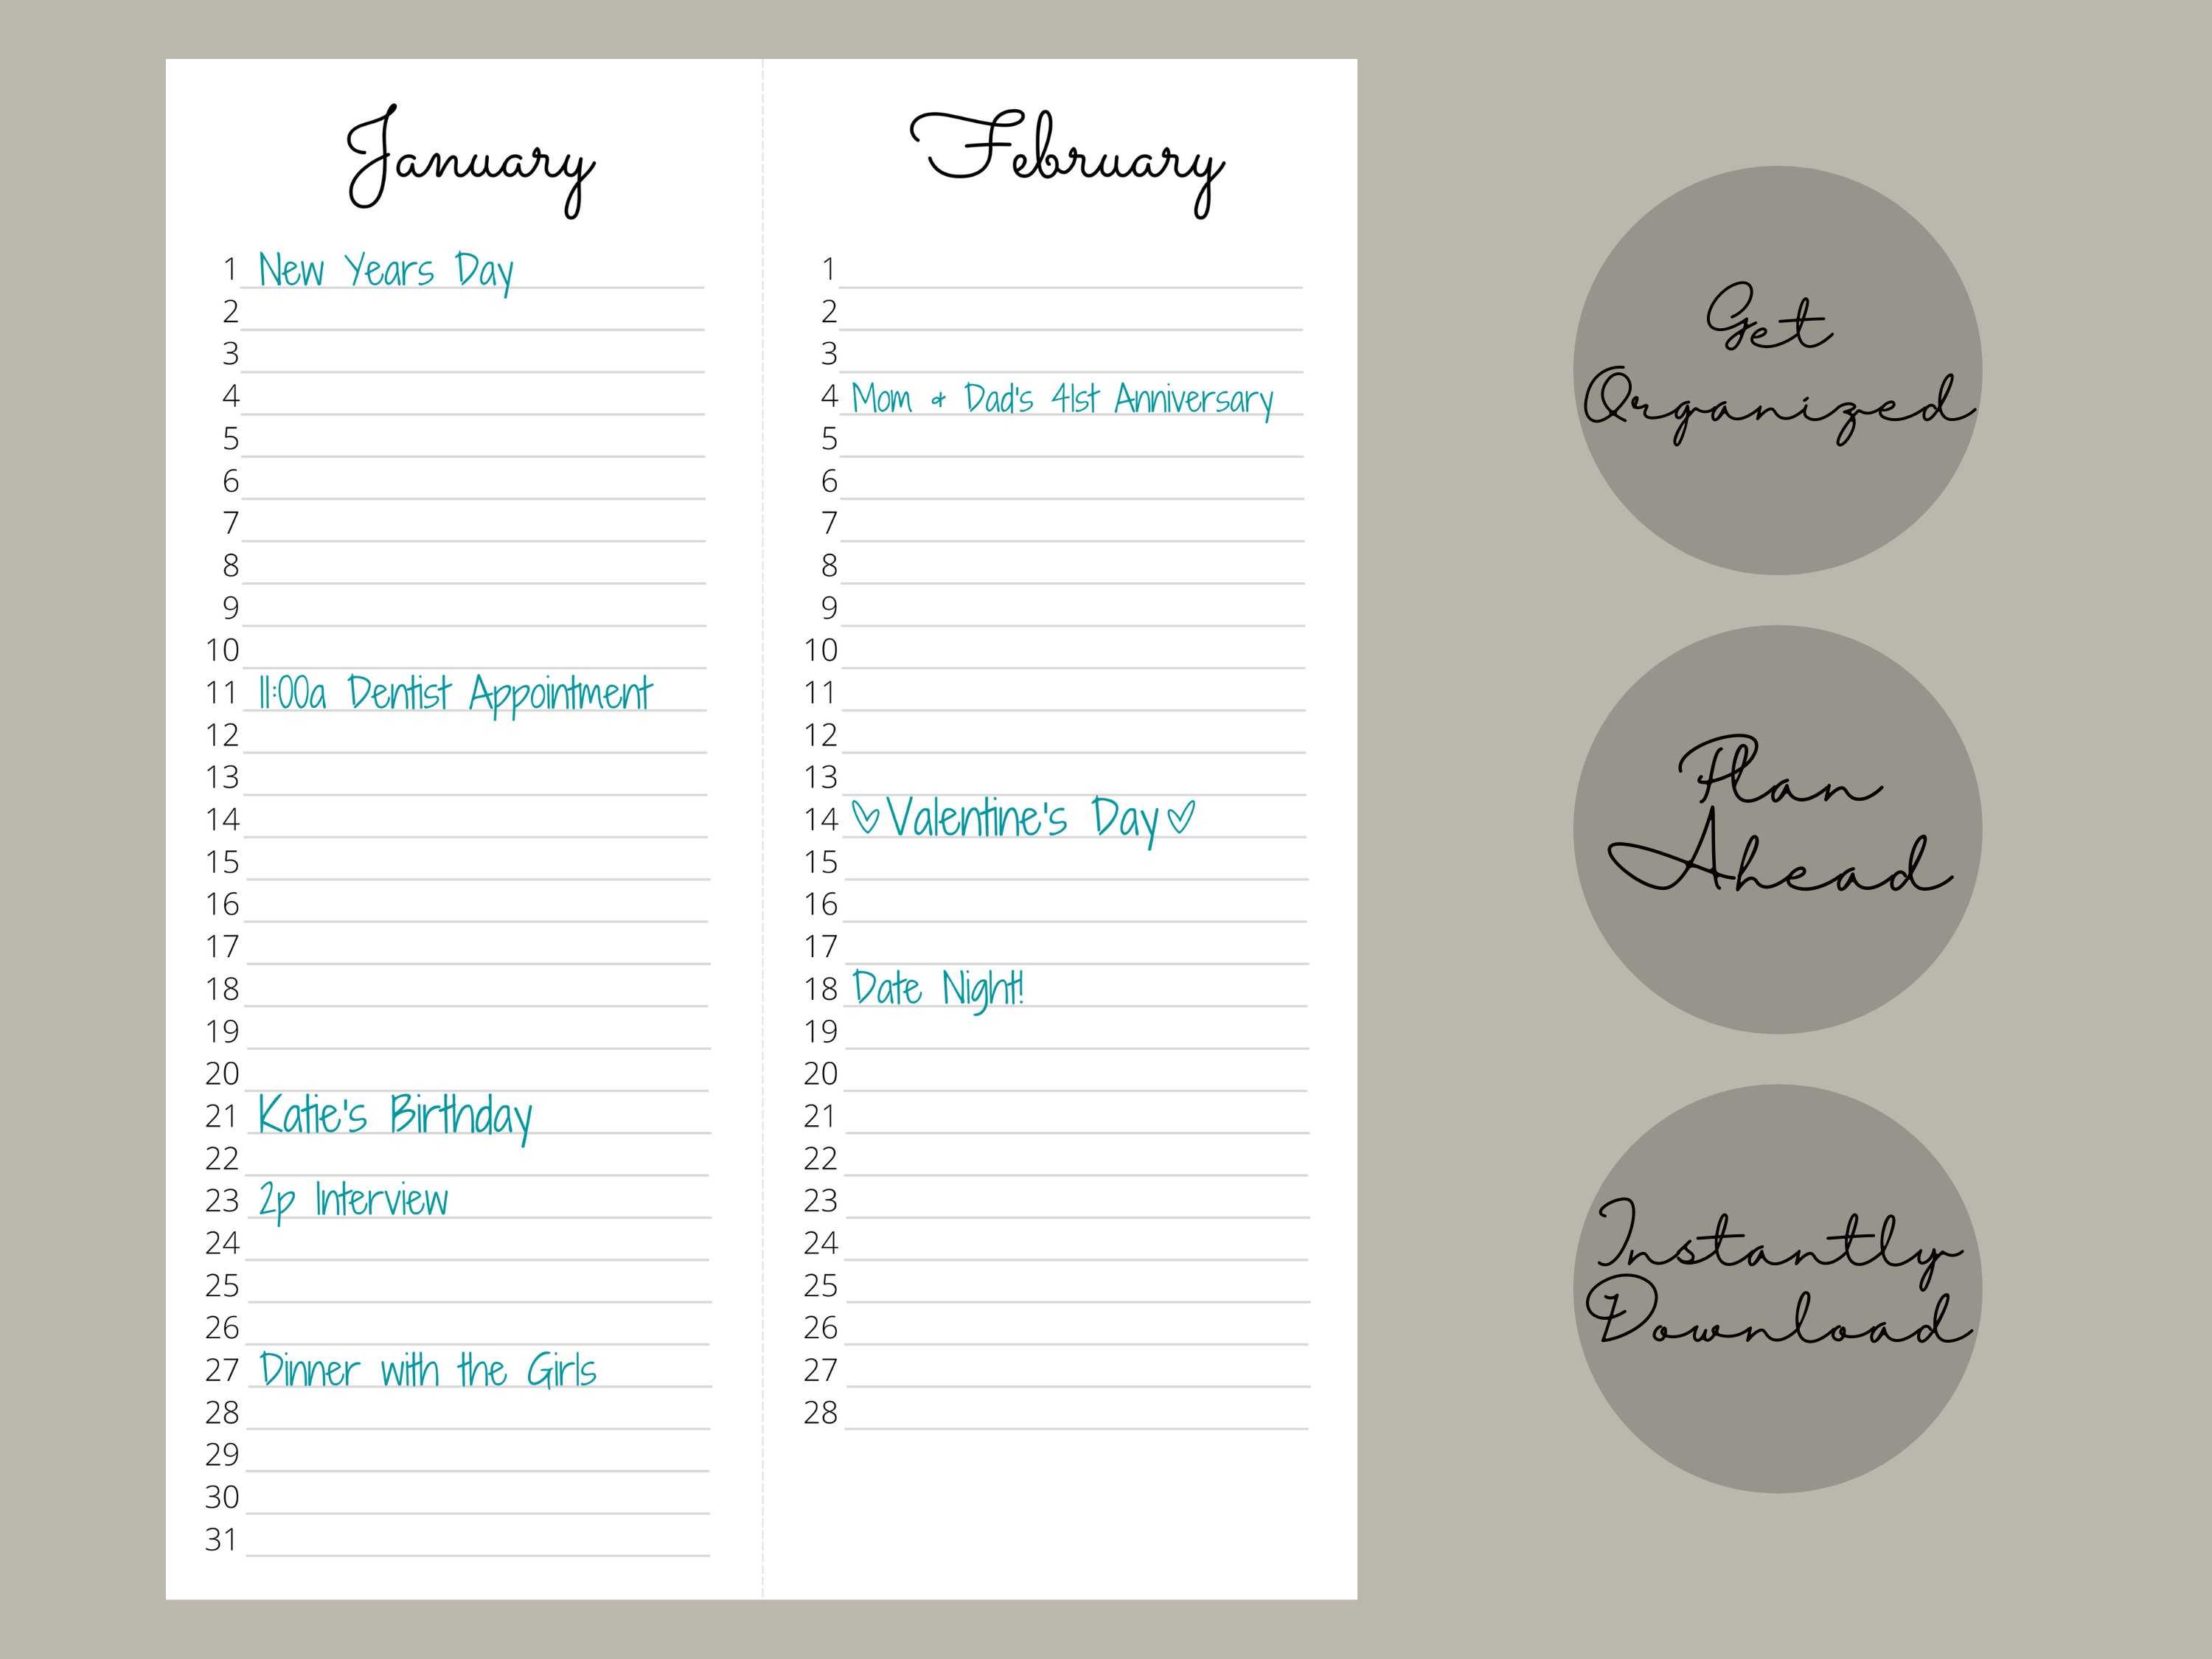 January
1 New Years Day
2
3
4
5
6
7
8
9
10
11 11:00a Dentist Appointment
12
13
14
15
16
17
18
19
20
21 Katie's Birthday
22
23 2p Interview
24
25
26
27 Dinner with the Girls
28
29
30
31
February
1
2
3
4 Mom & Dad's 41st Anniversary
5
6
7
8
9
10
11
12
13
14 ♡Valentine's Day♡
15
16
17
18 Date Night!
19
20
21
22
23
24
25
26
27
28
Get
Organized
Plan
Ahead
Instantly
Download